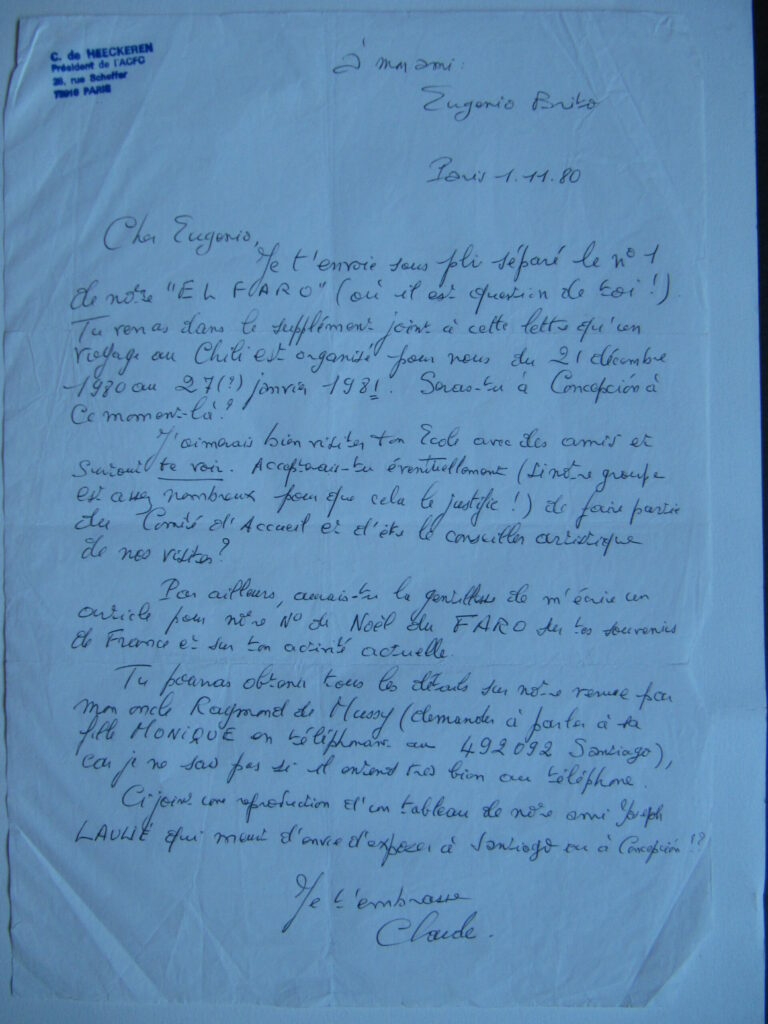 C. de HEECKEREN
Président de l'ACFC
26, rue Scheffer
75016 PARIS
à mon ami :
Eugenio Brito
Paris 1.11.80
Cher Eugenio,
Je t'envoie sous pli séparé le n° 1
de notre "EL FARO" (où il est question de toi !).
Tu verras dans le supplément joint à cette lettre qu'un
voyage au Chili est organisé pour nous du 21 décembre
1980 au 27(?) janvier 1981. Seras-tu à Concepción à
ce moment-là ?
J'aimerais bien visiter ton Ecole avec des amis et
surtout te voir. Accepterais-tu éventuellement (si notre groupe
est assez nombreux pour que cela le justifie !) de faire partie
du Comité d'Accueil et d'être le conseiller artistique
de nos visites ?
Par ailleurs, aurais-tu la gentillesse de m'écrire un
article pour notre N° de Noël du FARO sur tes souvenirs
de France et sur ton activité actuelle.
Tu pourras obtenir tous les détails sur notre venue par
mon oncle Raymond de Mussy (demander à parler à sa
fille MONIQUE en téléphonant au 492092 Santiago),
car je ne sais pas si il entend très bien au téléphone.
Ci-joint une reproduction d'un tableau de notre ami Joseph
LAULIÉ qui meurt d'envie d'exposer à Santiago ou à Concepción !?
Je t'embrasse
Claude.